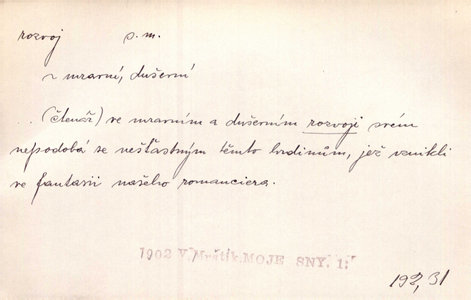 rozvoj s. m.
~ mravní, duševní
(čtenář) ve mravním a duševním rozvoji svém
nepodobá se nešťastným těmto hrdinům, jež vznikli
ve fantasii našeho romanciera.
1902 V. Mrštík. MOJE SNY. 1:
192, 31